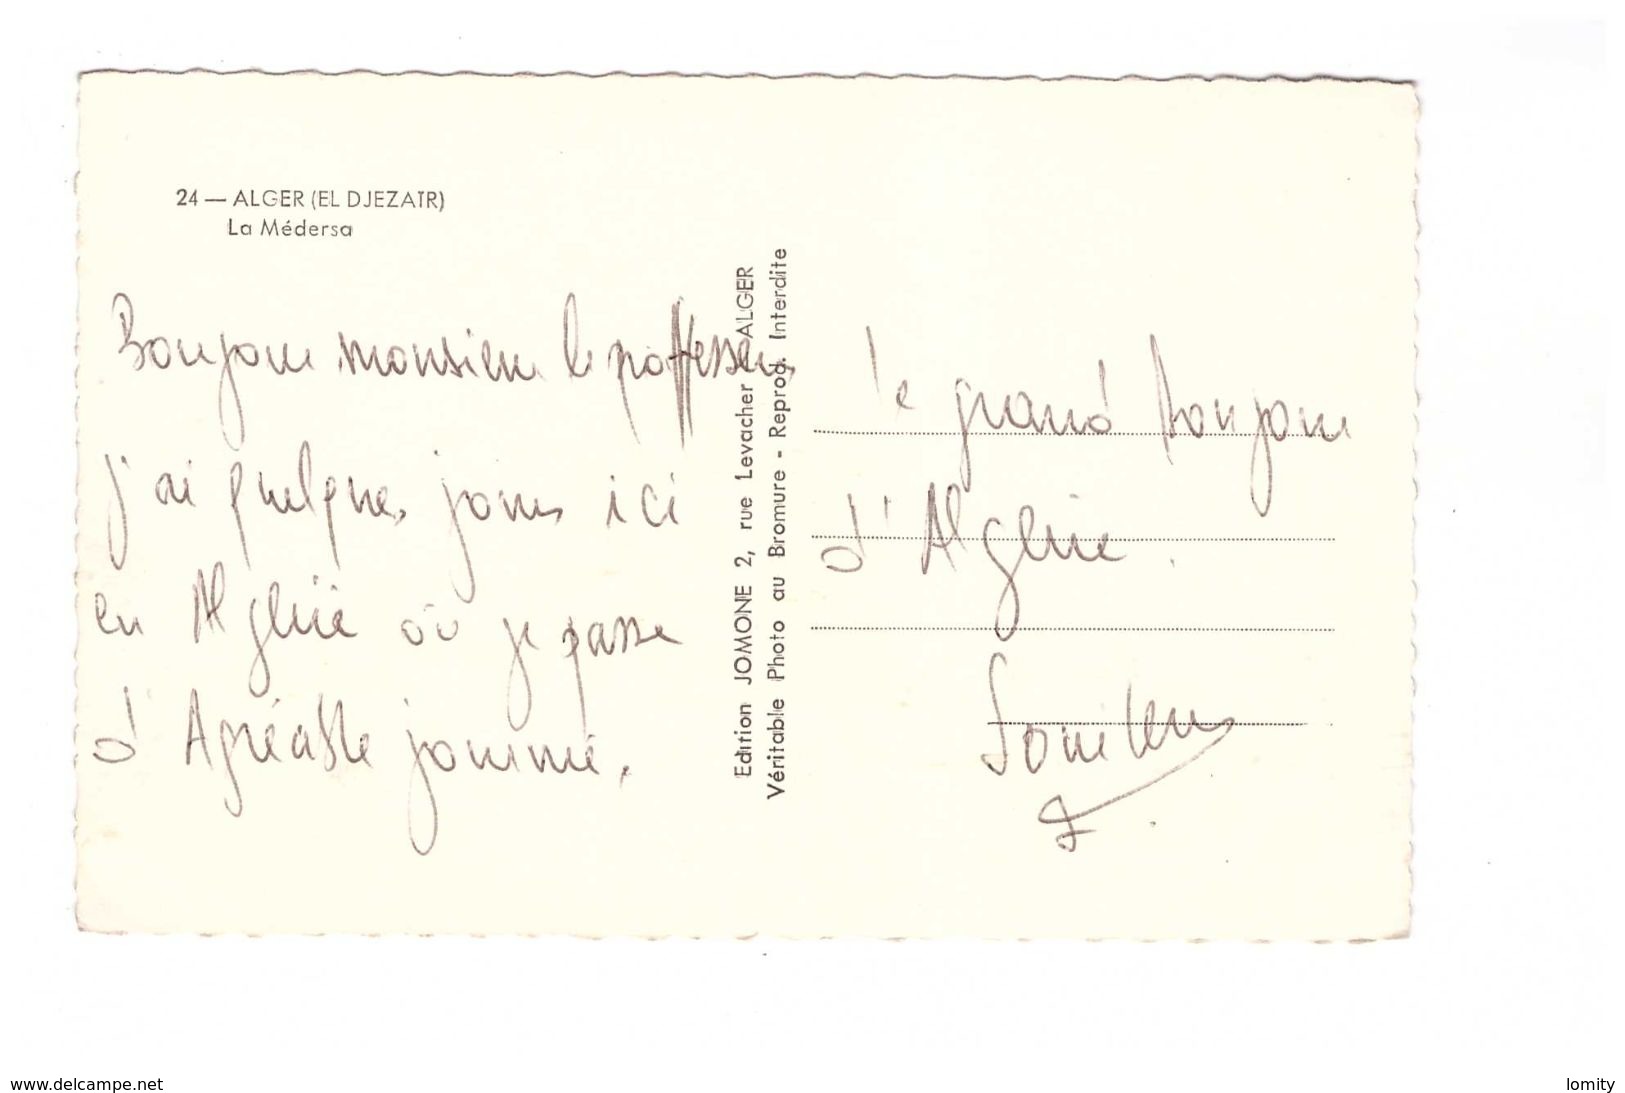 24 — ALGER (EL DJEZAÏR)
La Médersa
Bonjour monsieur le poffesseur
j'ai quelques jours ici
en Algérie où je passe
d'Agréable journné.
Edition JOMONE 2, rue Levacher - ALGER
Véritable Photo au Bromure - Reprod. Interdite
le grand bonjour
d'Algérie.
www.delcampe.net
lomity